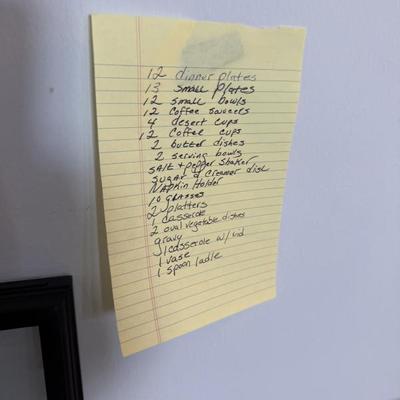 12 dinner plates
13 small plates
12 small bowls
12 coffee saucers
4 desert cups
12 coffee cups
2 butter dishes
2 serving bowls
salt + pepper shaker
sugar & creamer dish
Napkin Holder
10 glasses
2 platters
1 casserole
2 oval vegetable dishes
gravy
1 casserole w/ lid
1 vase
1 spoon ladle